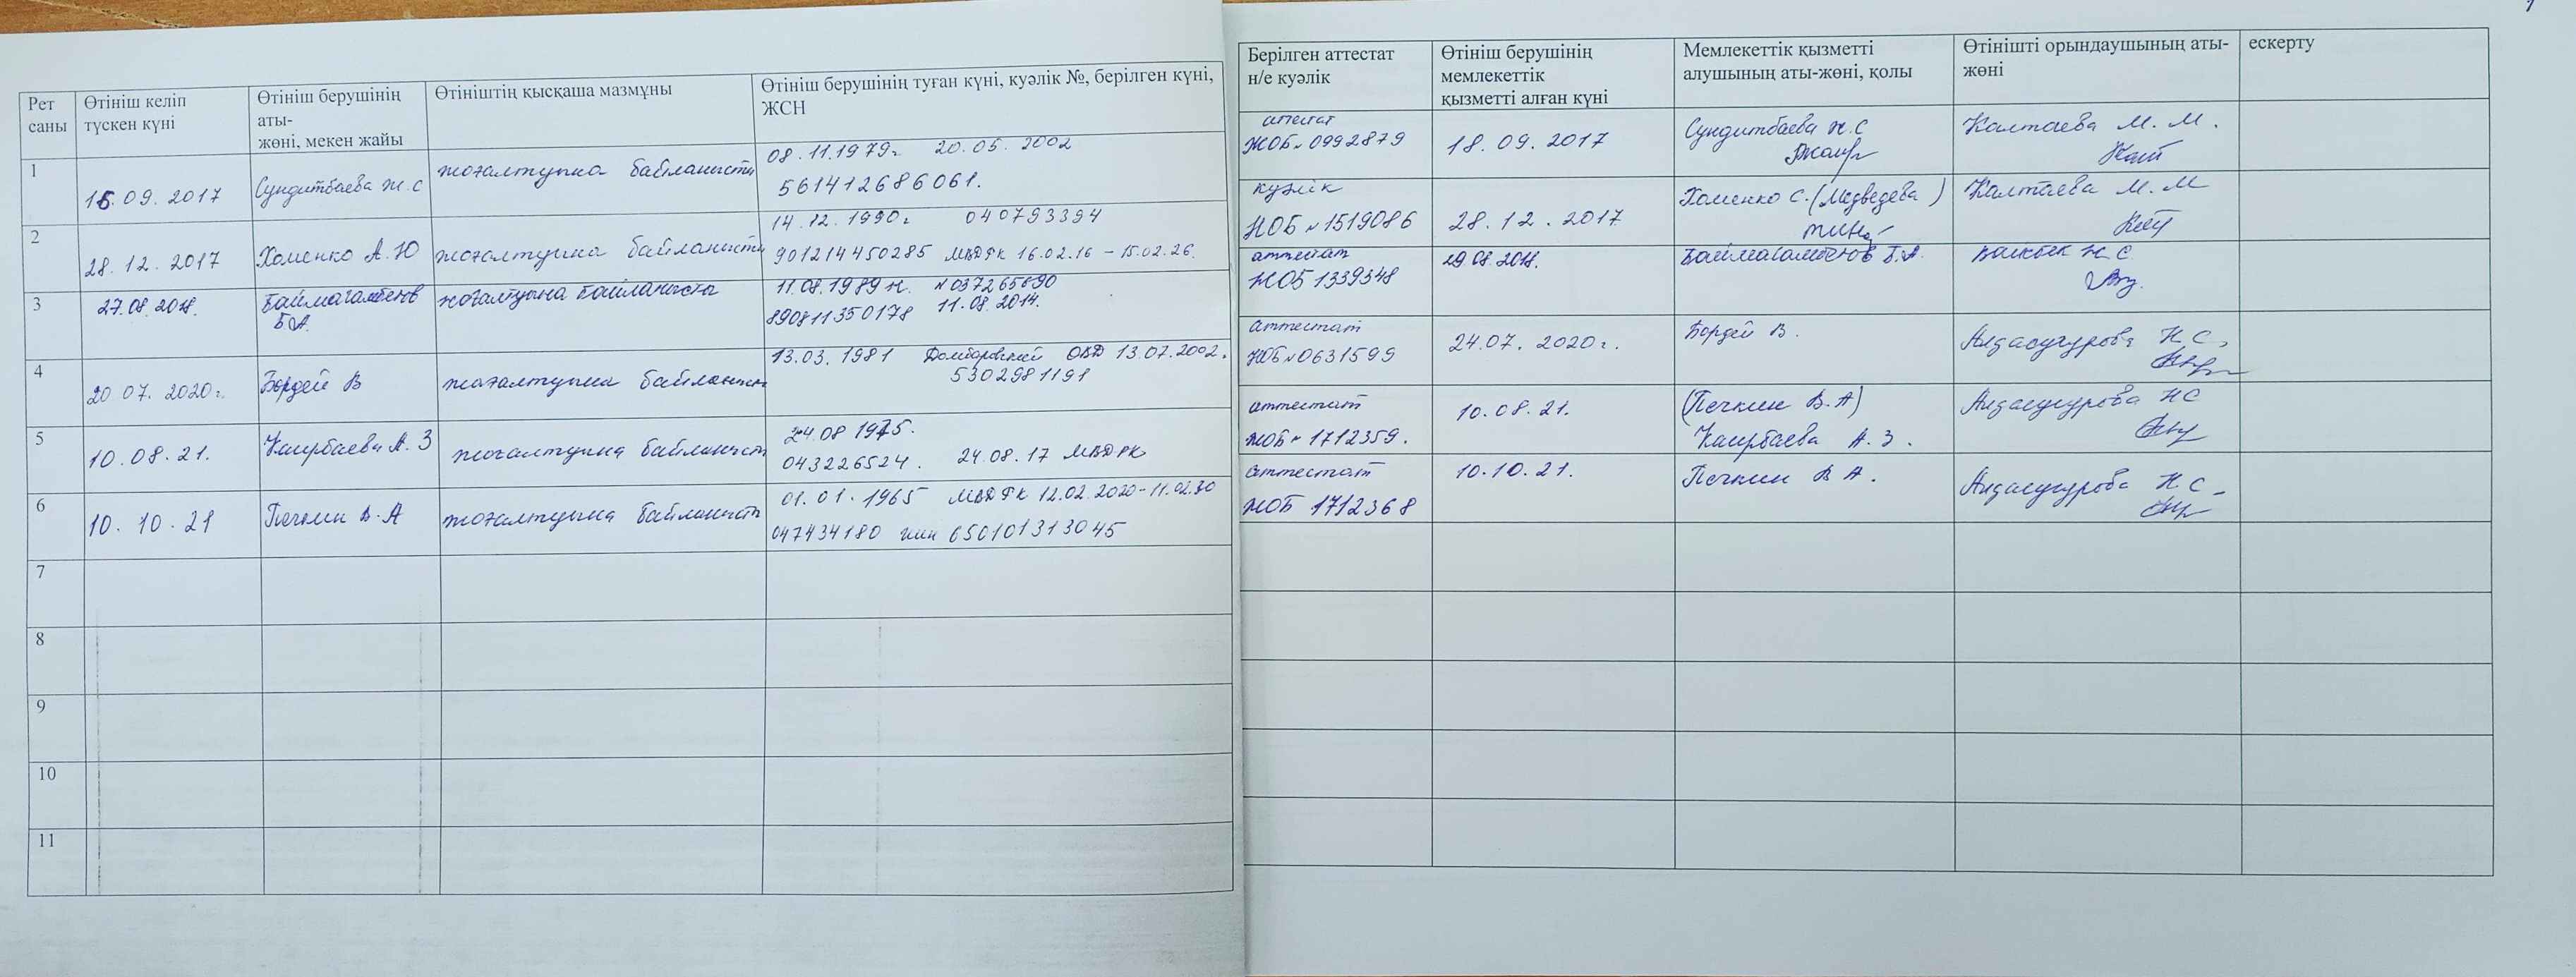 Рет саны
Өтініш келіп түскен күні
Өтініш берушінің аты-жөні, мекен жайы
Өтініштің қысқаша мазмұны
Өтініш берушінің туған күні, куәлік №, берілген күні, ЖСН
Берілген аттестат н/е куәлік
Өтініш берушінің мемлекеттік қызметті алған күні
Мемлекеттік қызметті алушының аты-жөні, қолы
Өтінішті орындаушының аты-жөні
ескерту
1
15.09.2017
Сундитбаева Ж.С
жоғалтуына байланысты
08.11.1979г. 20.05.2002
561412686061.
аттестат
ЖОБ № 0992879
18.09.2017
Сундитбаева Ж.С
Калтаева М.М.
2
28.12.2017
Хоменко А.Ю
жоғалтуына байланысты
14.12.1990г 040793394
901214450285 МВДРК 16.02.16 – 15.02.26.
куәлік
НОБ № 1519086
28.12.2017
Хоменко С.(Медведева)
Калтаева М.М
3
27.08.2018.
Баймагамбетов
Б.А.
жоғалтуына байланысты
11.08.1989ж. №037265690
890811350178 11.08.2014.
аттестат
ЖОБ 1339348
29.08.2018.
Баймагамбетов Б.А.
4
20.07.2020г.
Бордей В
жоғалтуына байланысты
13.03.1981 Домбаровский ОВД 13.07.2002.
5302981191
аттестат
ЖОБ №0631599
24.07.2020г.
Бордей В.
Андасугурова Н.С.
5
10.08.21.
Каирбаева А.З
жоғалтуына байланысты
24.08 1975.
043226524. 24.08.17 МВДРК
аттестат
ЖОБ № 1712359.
10.08.21.
(Печкин В.А)
Каирбаева А.З.
Андасугурова НС
6
10.10.21
Печкин В.А
жоғалтуына байланысты
01.01.1965 МВДРК 12.02.2020-11.02.30
047434180 иин 650101313045
аттестат
ЖОБ 1712368
10.10.21.
Печкин В А.
Андасугурова Н.С.
7
8
9
10
11